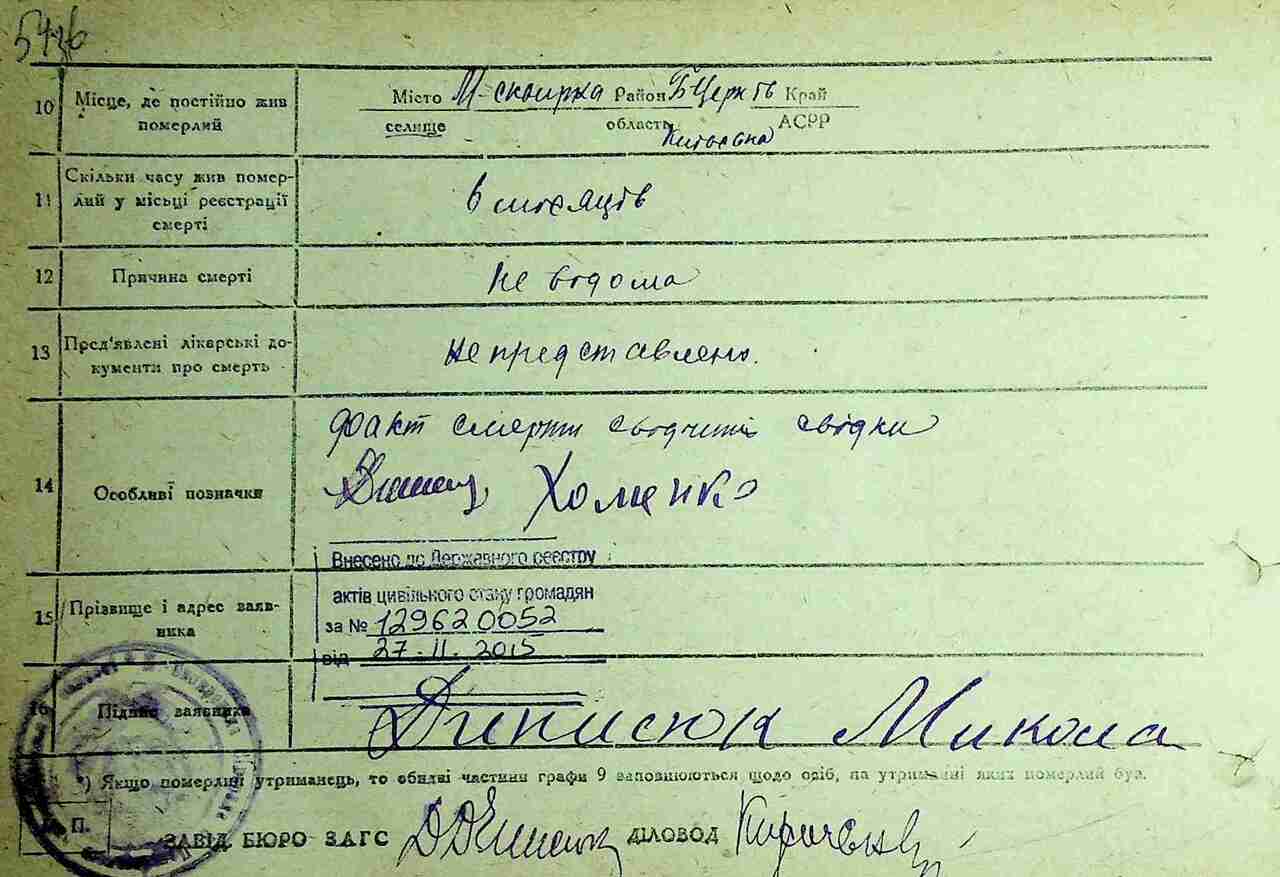 5476
10 Місце, де постійно жив померлий
Місто М-Сквирка Район БЦеркв Край
селище область АСРР
Київська
11 Скільки часу жив померлий у місці реєстрації смерті
6 місяців
12 Причина смерті
Не відома
13 Пред'явлені лікарські документи про смерть
Не представлено.
14 Особливі позначки
Факт смерти свідчить свідки
Хоменко
Внесено до Державного реєстру
актів цивільного стану громадян
за № 129620052
від 27.11.2015
15 Прізвище і адрес заявника
16 Підпис заявника
Микола
*) Якщо померлий утриманець, то обидві частини графи 9 заповнюються щодо осіб, на утриманні яких померлий був.
М. П.
ЗАВІД. БЮРО ЗАГС ДІЛОВОД